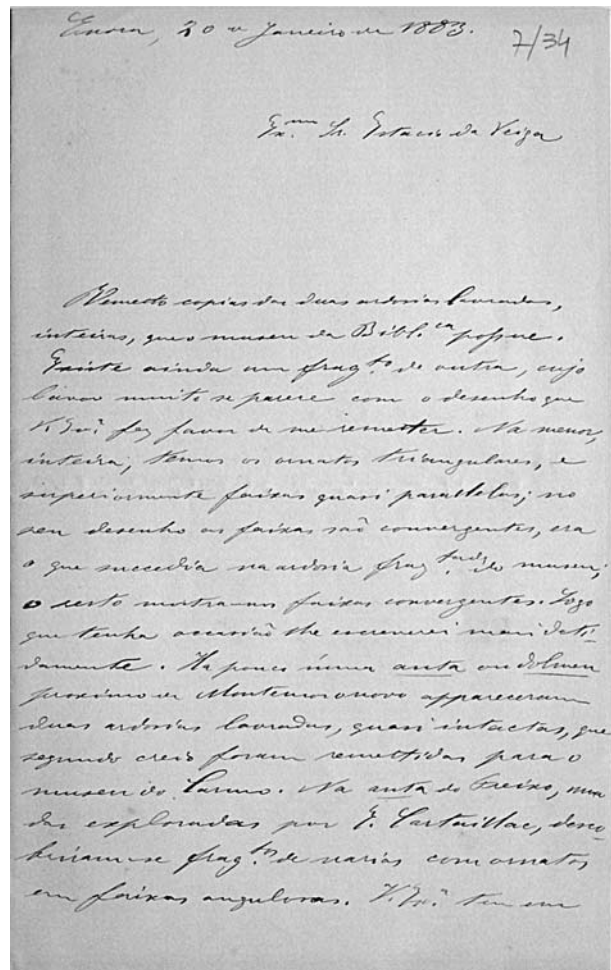 Evora, 20 de Janeiro de 1883.
7/34
Ex.mo Sr. Estacio da Veiga
Remetto copias das duas ardosias lavradas,
inteiras, que o museu da Bibl.ca possue.
Existe ainda um frag.to de outra, cujo
lavor muito se parece com o desenho que
V. Ex.ª faz favor de me remetter. Na menor,
inteira, temos os ornatos triangulares, e
superiormente faixas quasi parallelas; no
seu desenho as faixas saõ convergentes, era
o que succedia na ardosia do museu;
o resto mostra-nos faixas convergentes. Logo
que tenha occasiaõ lhe escreverei mais deti-
damente. Ha pouco n'uma anta ou dolmen
proximo de Montemor o novo appareceram
duas ardosias lavradas, quasi intactas, que
segundo creio foram remettidas para o
museu do Carmo. Na anta do Freixo, uma
das exploradas por E. Cartailhac, desco-
briram-se frag.tos de varias com ornatos
em faixas angulosas. V. Ex.ª tem em